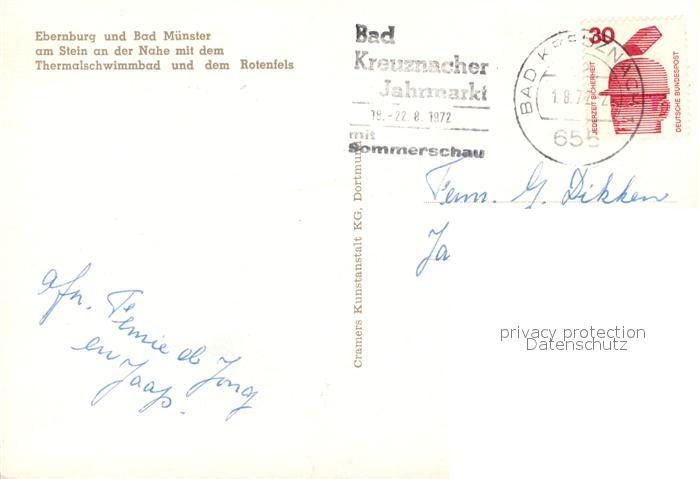 Ebernburg und Bad Münster
am Stein an der Nahe mit dem
Thermalschwimmbad und dem Rotenfels
Bad
Kreuznacher
Jahrmarkt
18.-22. 8. 1972
mit
Sommerschau
BAD KREUZNACH
1.8.72
655
30
JEDERZEIT SICHERHEIT
DEUTSCHE BUNDESPOST
Cramers Kunstanstalt KG, Dortmund
Fam. G. Dikken
Ja
afz. Femie de Jong
en Jaap.
privacy protection
Datenschutz